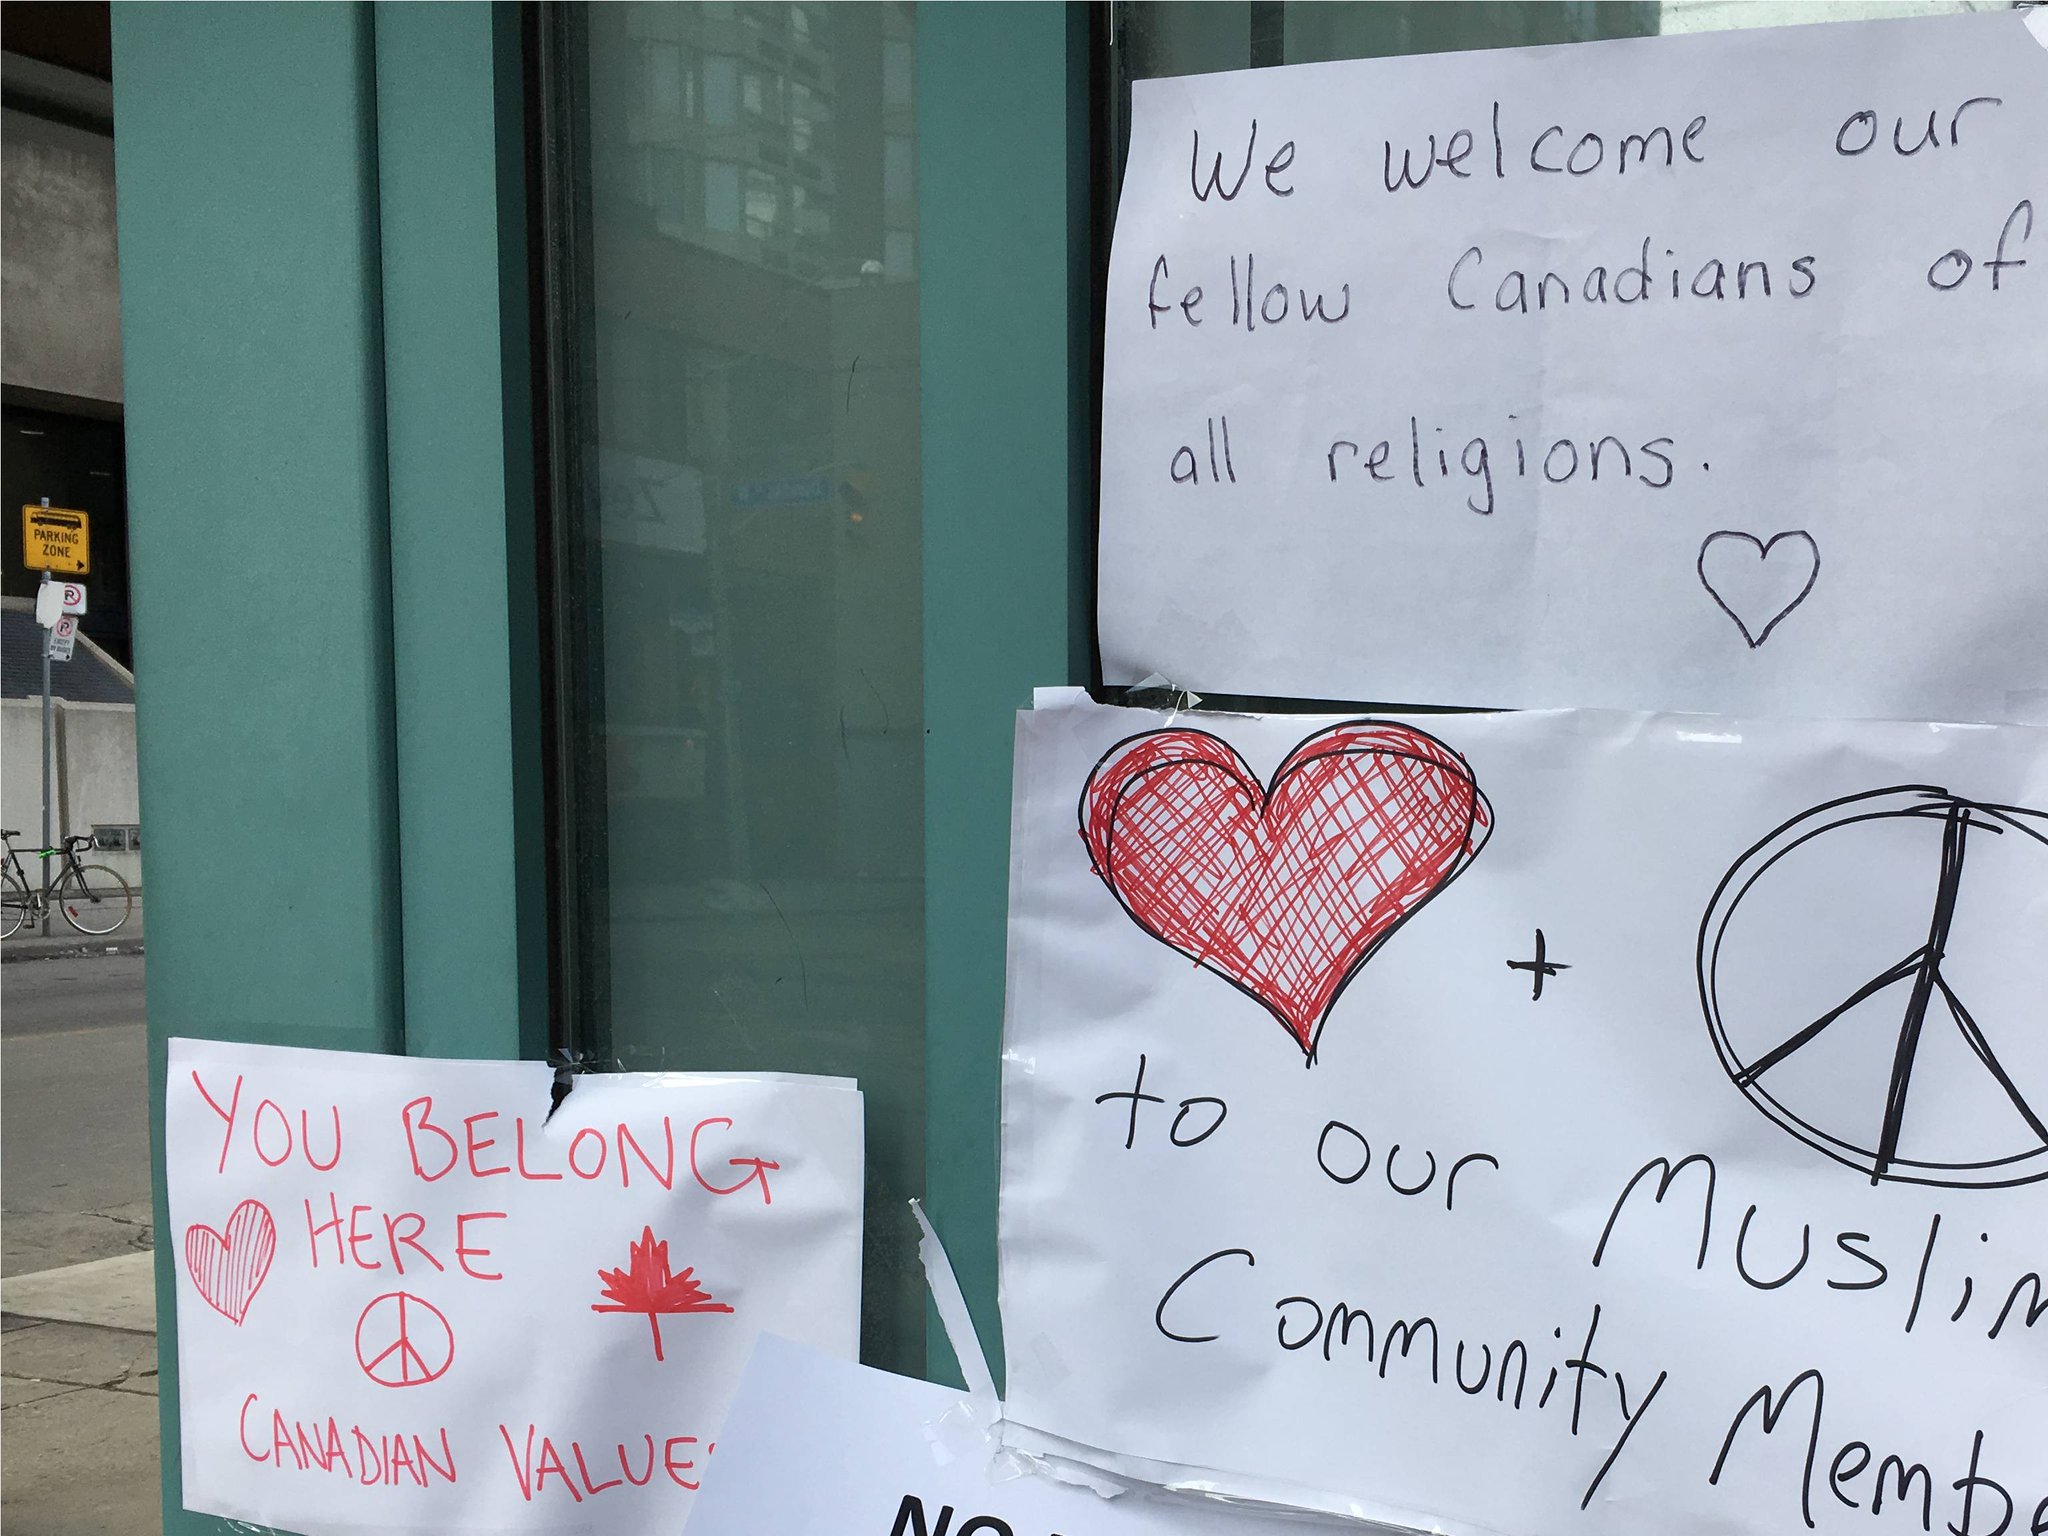 We welcome our
fellow Canadians of
all religions.
+
to our Muslim
Community Membe
YOU BELONG
HERE
CANADIAN VALUES
NO
PARKING
ZONE